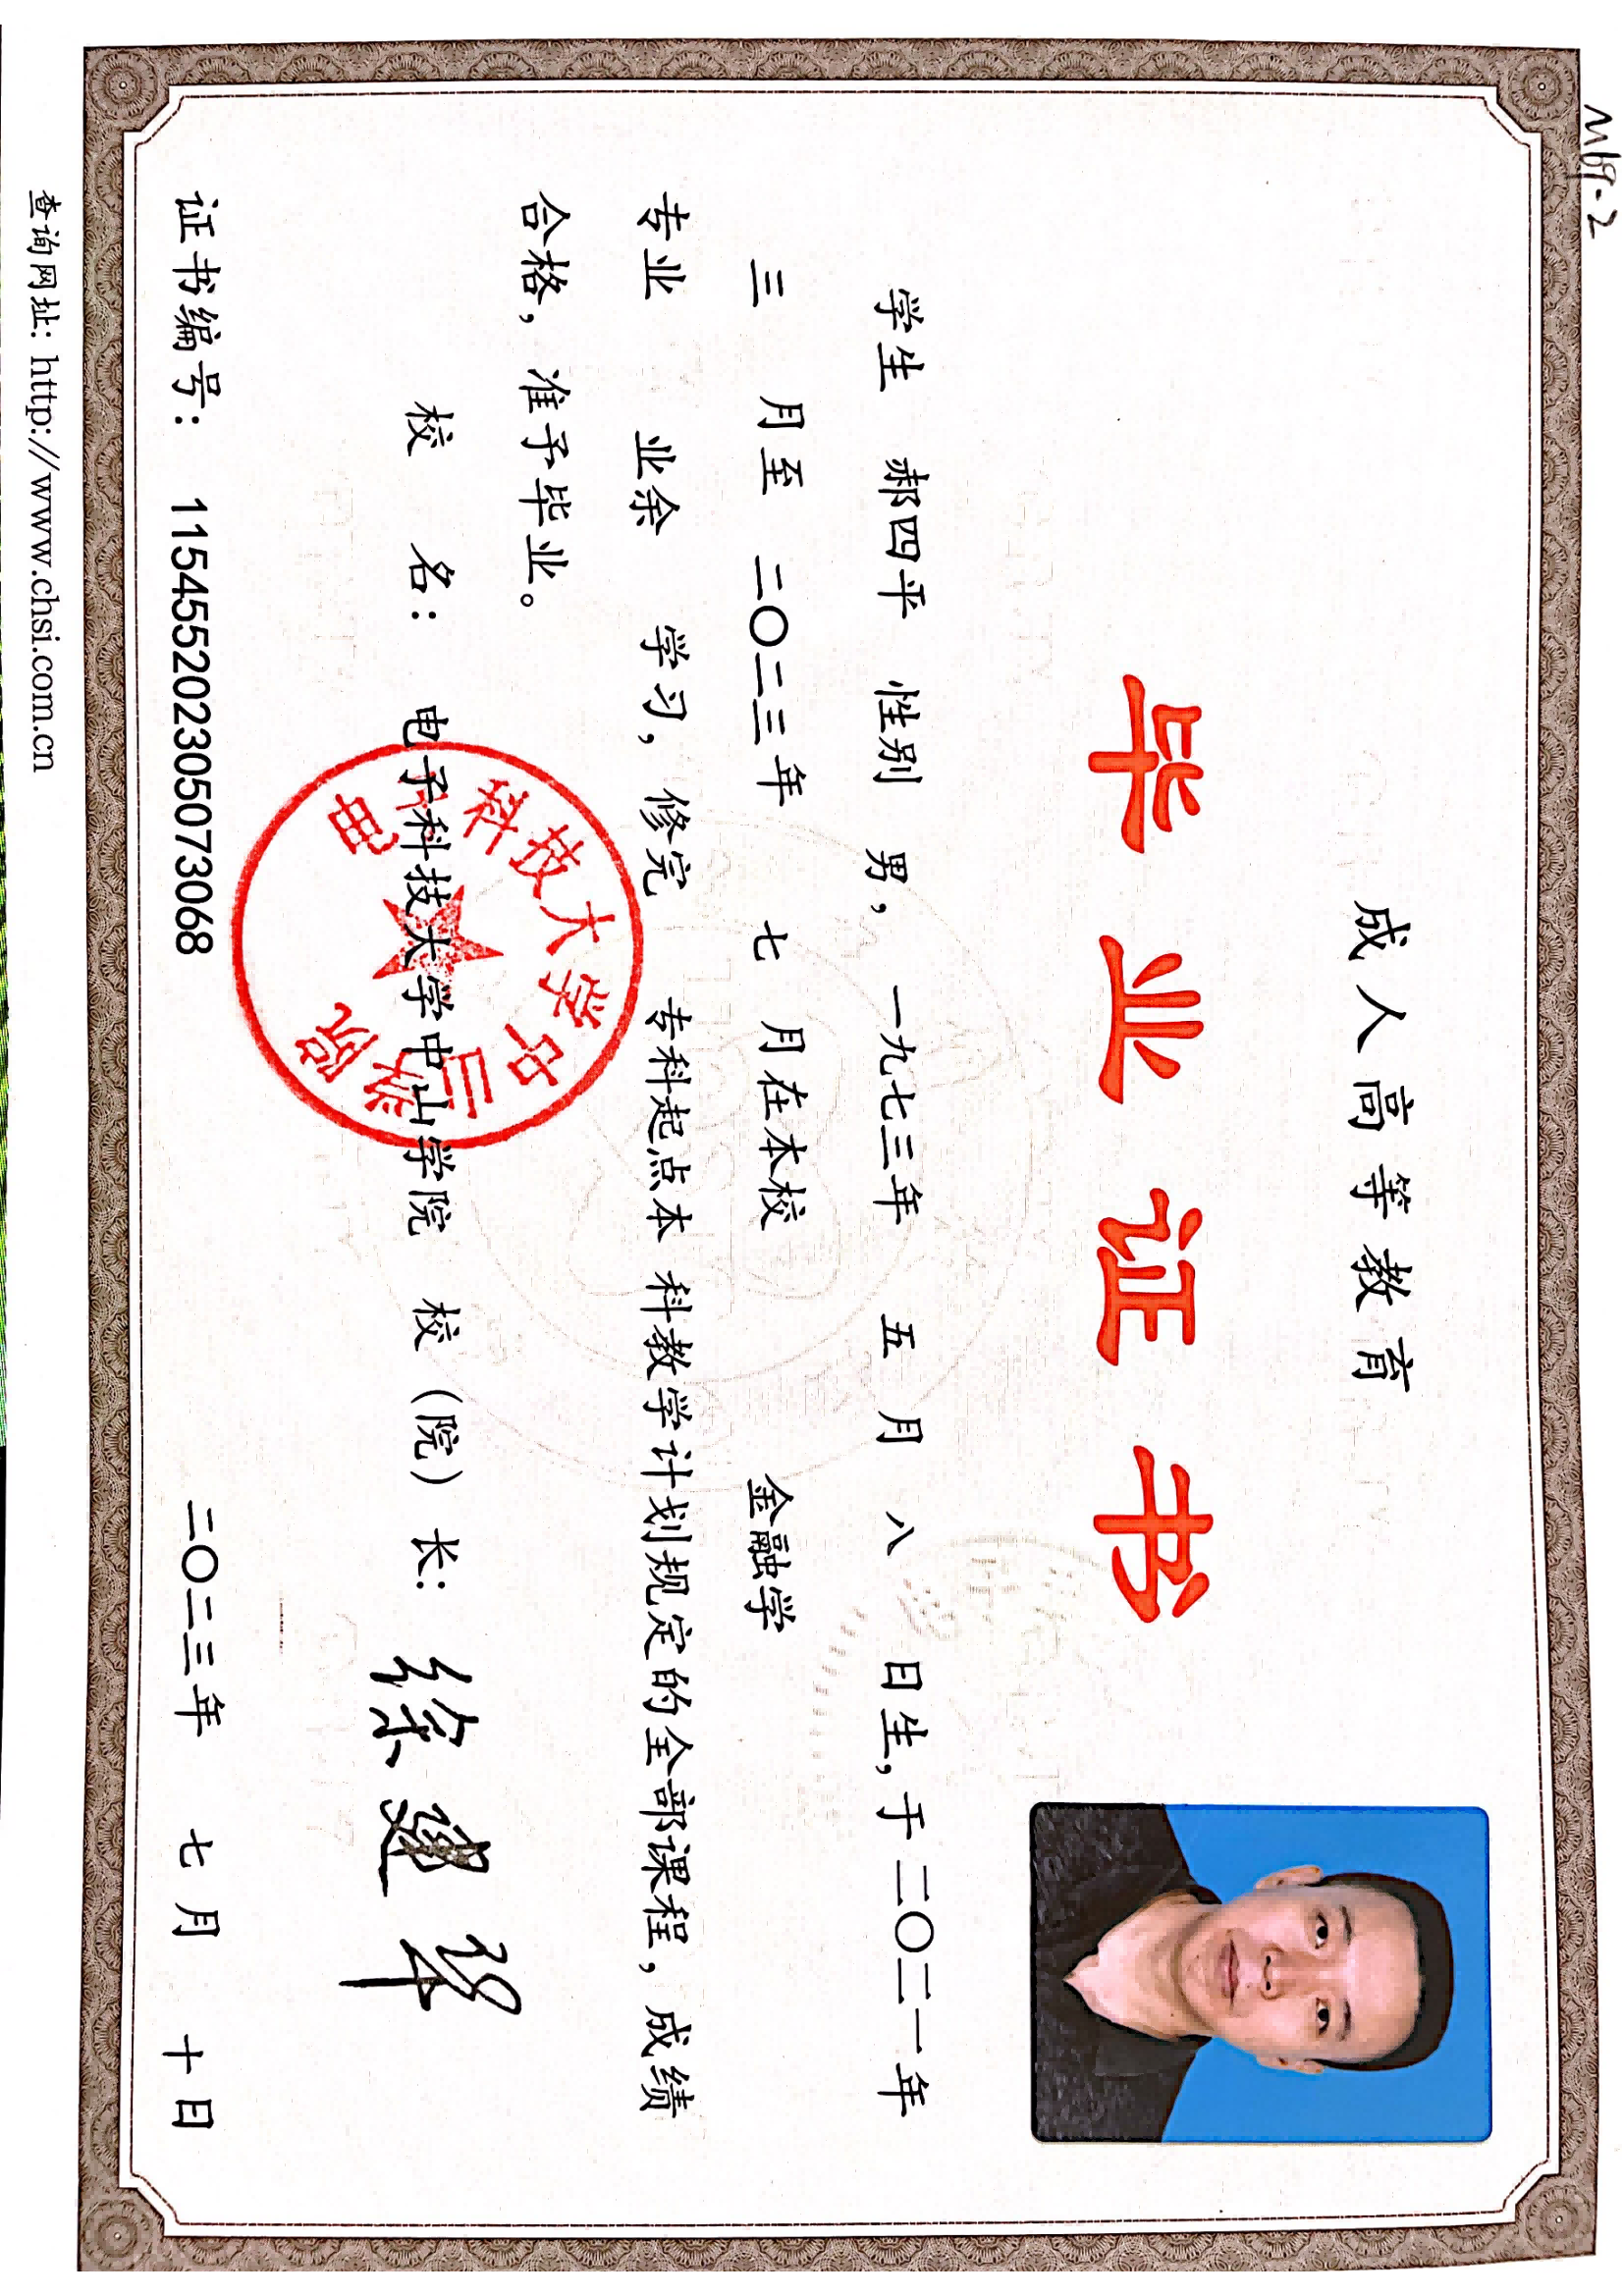 M69-2
成人高等教育
毕业证书
学生 郝四平 性别 男，一九七三年 五 月 八 日生，于二〇二一年
三 月至 二〇二三年 七 月在本校 金融学
专业 业余 学习，修完 专科起点本 科教学计划规定的全部课程，成绩
合格，准予毕业。
校 名： 电子科技大学中山学院 校（院）长：
电子科技大学中山学院
证书编号： 115455202305073068 二〇二三年 七 月 十 日
查询网址：http://www.chsi.com.cn